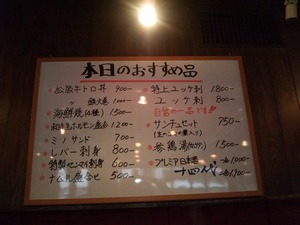 本日のおすすめ品
松阪牛トロ丼 900-
〃 鉄火巻 1,000-
海鮮焼(4種) 1,500-
和牛生ホルモン盛合 1,200-
ミノサンド 700-
レバー刺身 800-
特製センマイ刺身 600-
ナムル盛合せ 500-
特上ユッケ刺 1,800-
ユッケ刺 800-
自慢の一品です!!
サンチュセット 750-
参鶏湯 1,500-
プレミア日本酒
十四代